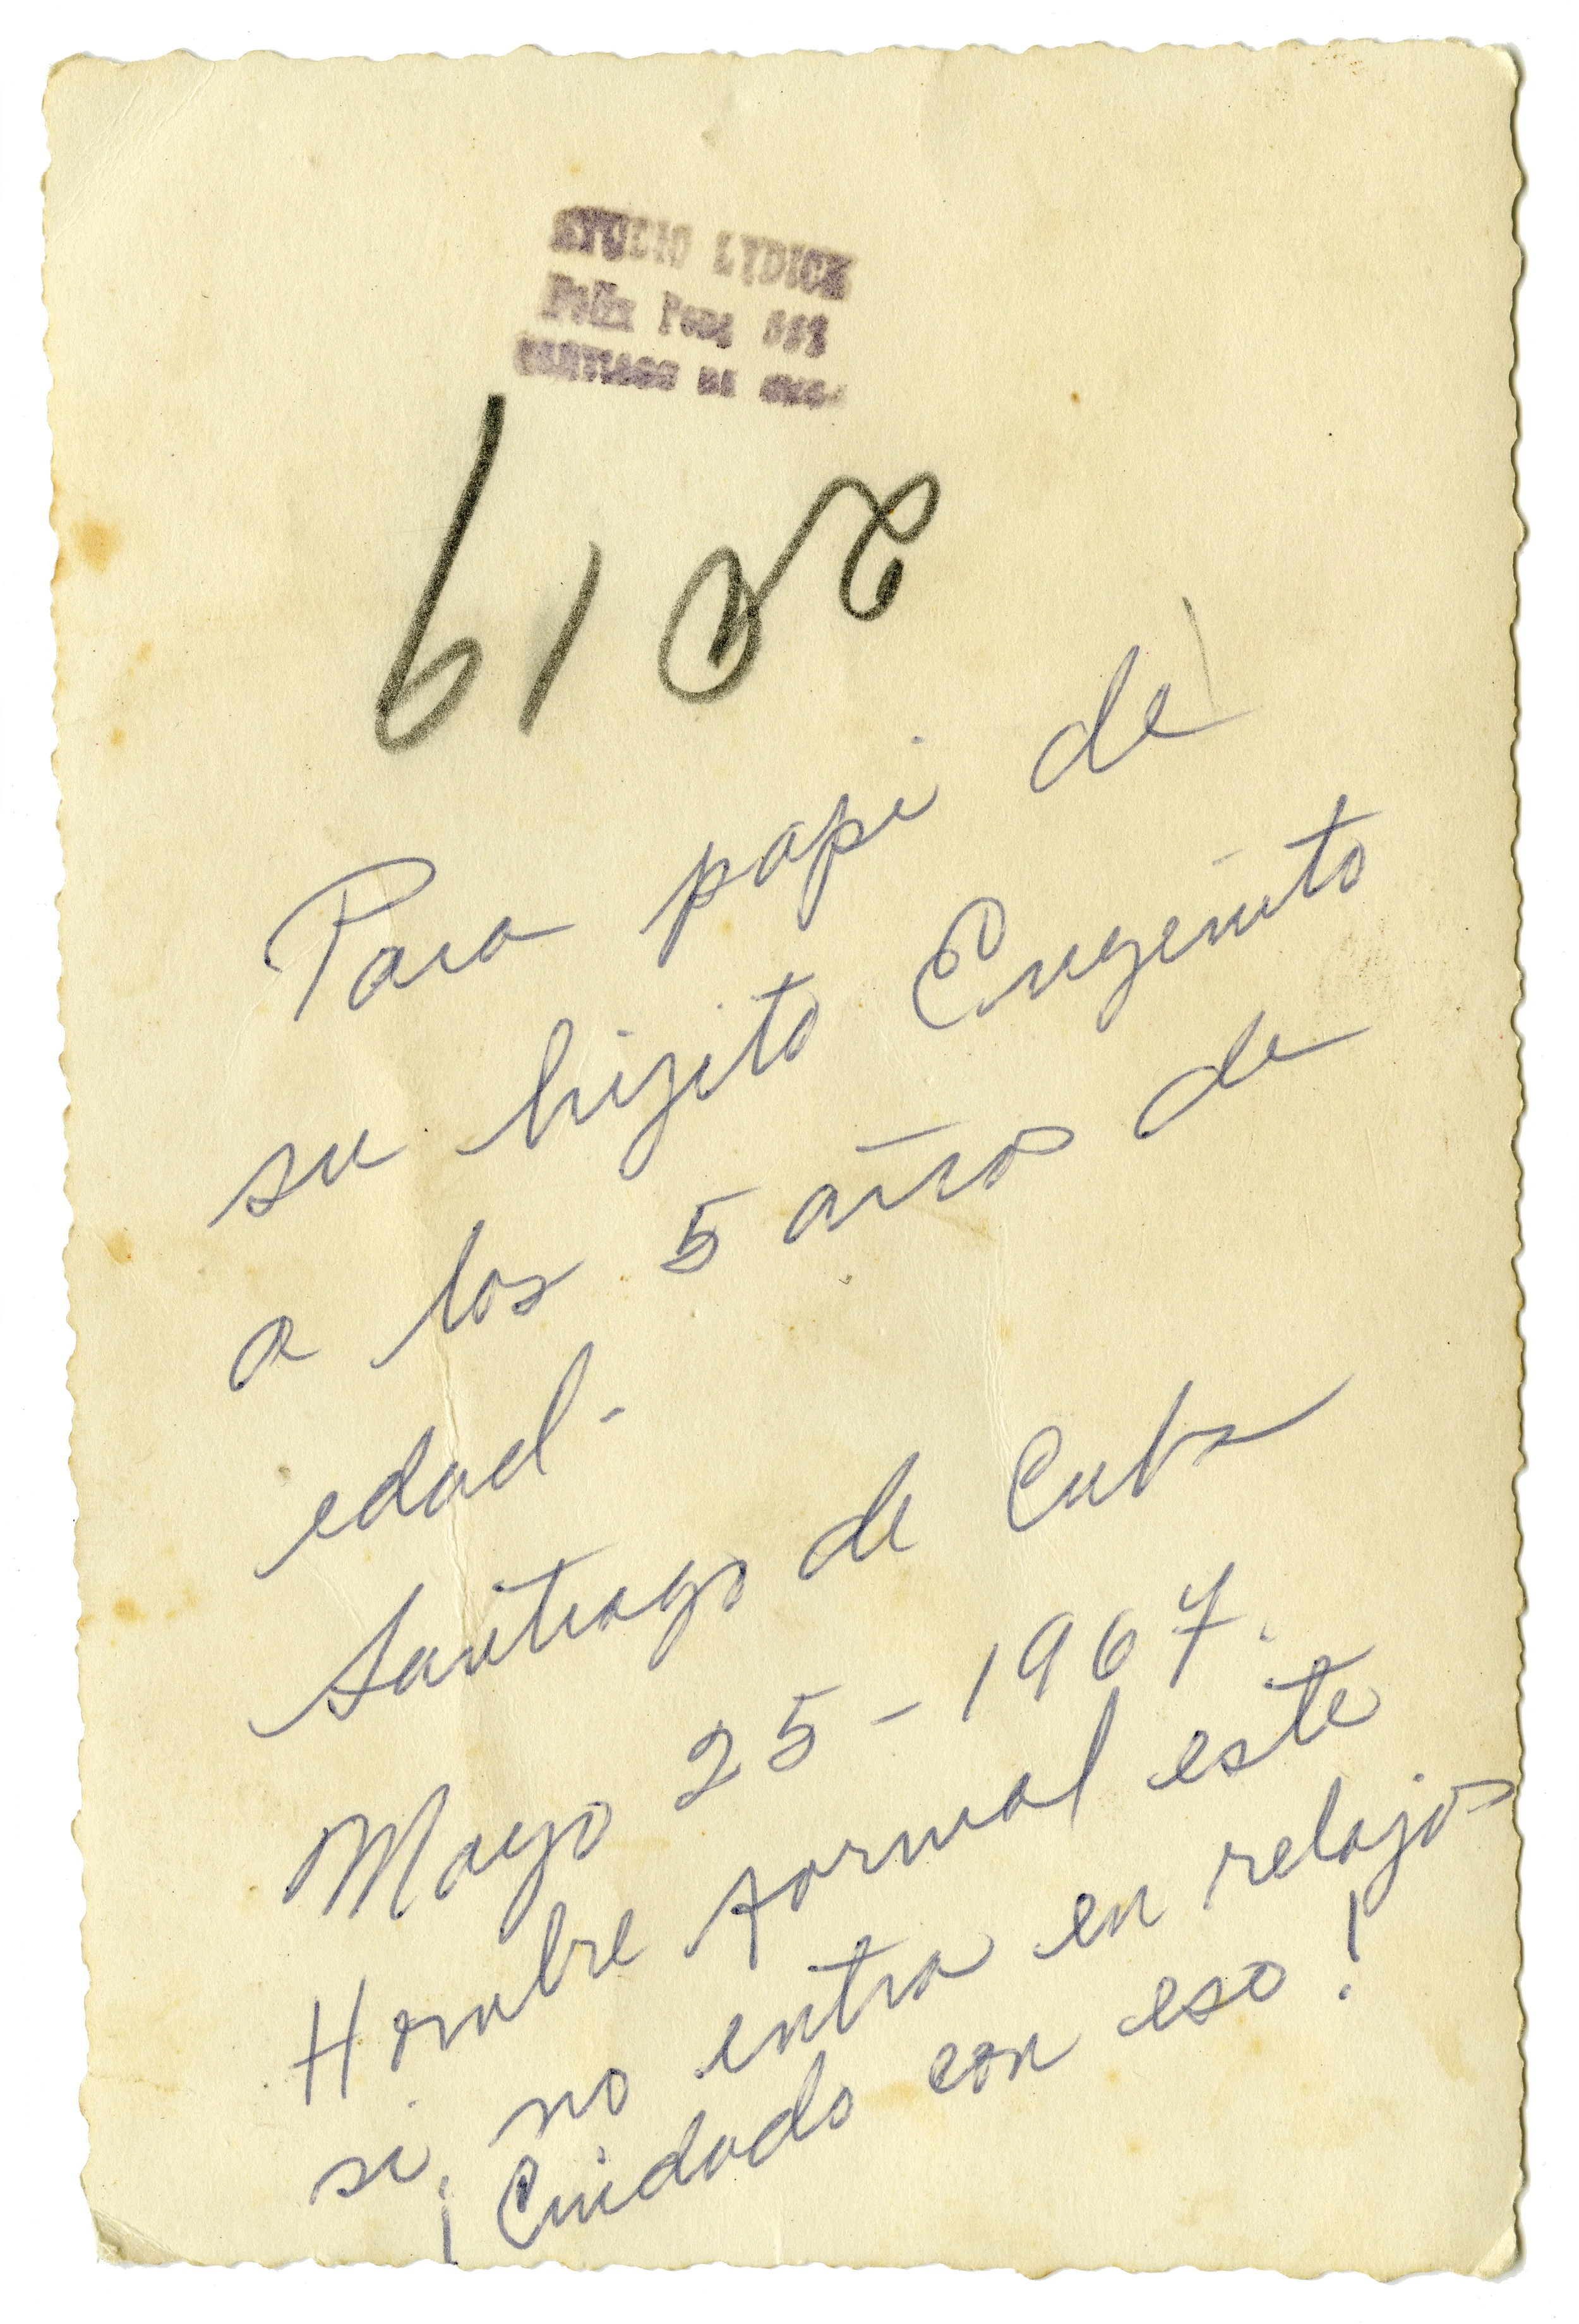 STUDIO LYDICE
Felix Pena
SANTIAGO DE CUBA
Para papi de
su hijito Eugenito
a los 5 años de
edad-
Santiago de Cuba
Mayo 25-1967.
Hombre formal este
si, no entra en relajos
¡Cuidado con eso!